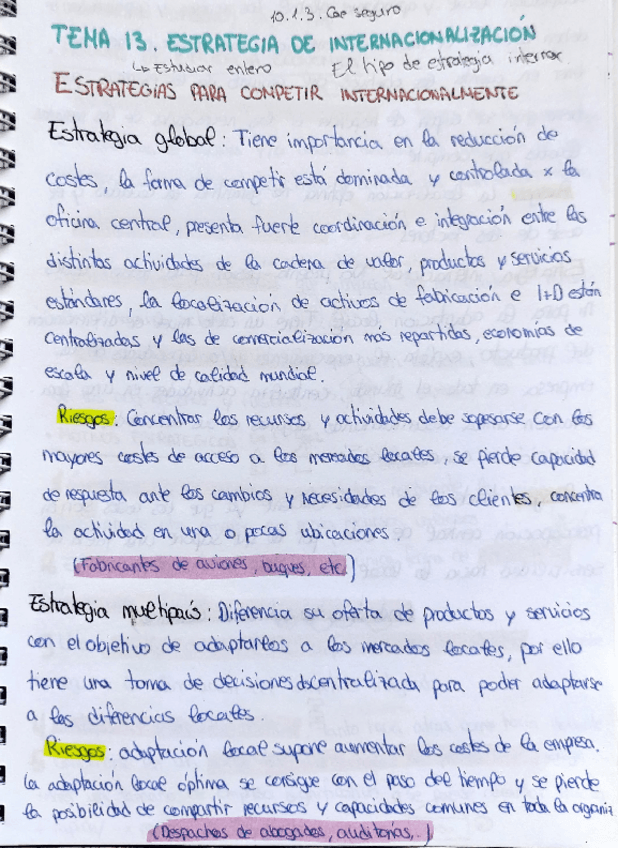 10.1.3. Cae seguro
TEMA 13. ESTRATEGIA DE INTERNACIONALIZACIÓN
↳ Estudiar entero El tipo de estrategia internac
ESTRATEGIAS PARA COMPETIR INTERNACIONALMENTE
Estrategia global: Tiene importancia en la reducción de
costes, la forma de competir está dominada y controlada x la
oficina central, presenta fuerte coordinación e integración entre las
distintas actividades de la cadena de valor, productos y servicios
estándares, la localización de activos de fabricación e I+D están
centralizadas y las de comercialización más repartidas, economías de
escala y nivel de calidad mundial.
Riesgos: Concentrar los recursos y actividades debe sopesarse con los
mayores costes de acceso a los mercados locales, se pierde capacidad
de respuesta ante los cambios y necesidades de los clientes, concentra
la actividad en una o pocas ubicaciones.
(Fabricantes de aviones, buques, etc.)
Estrategia multipaís: Diferencia su oferta de productos y servicios
con el objetivo de adaptarlos a los mercados locales, por ello
tiene una toma de decisiones descentralizada para poder adaptarse
a las diferencias locales.
Riesgos: adaptación local supone aumentar los costes de la empresa.
La adaptación local óptima se consigue con el paso del tiempo y se pierde
la posibilidad de compartir recursos y capacidades comunes en toda la organiz
(Despachos de abogados, auditorías..)